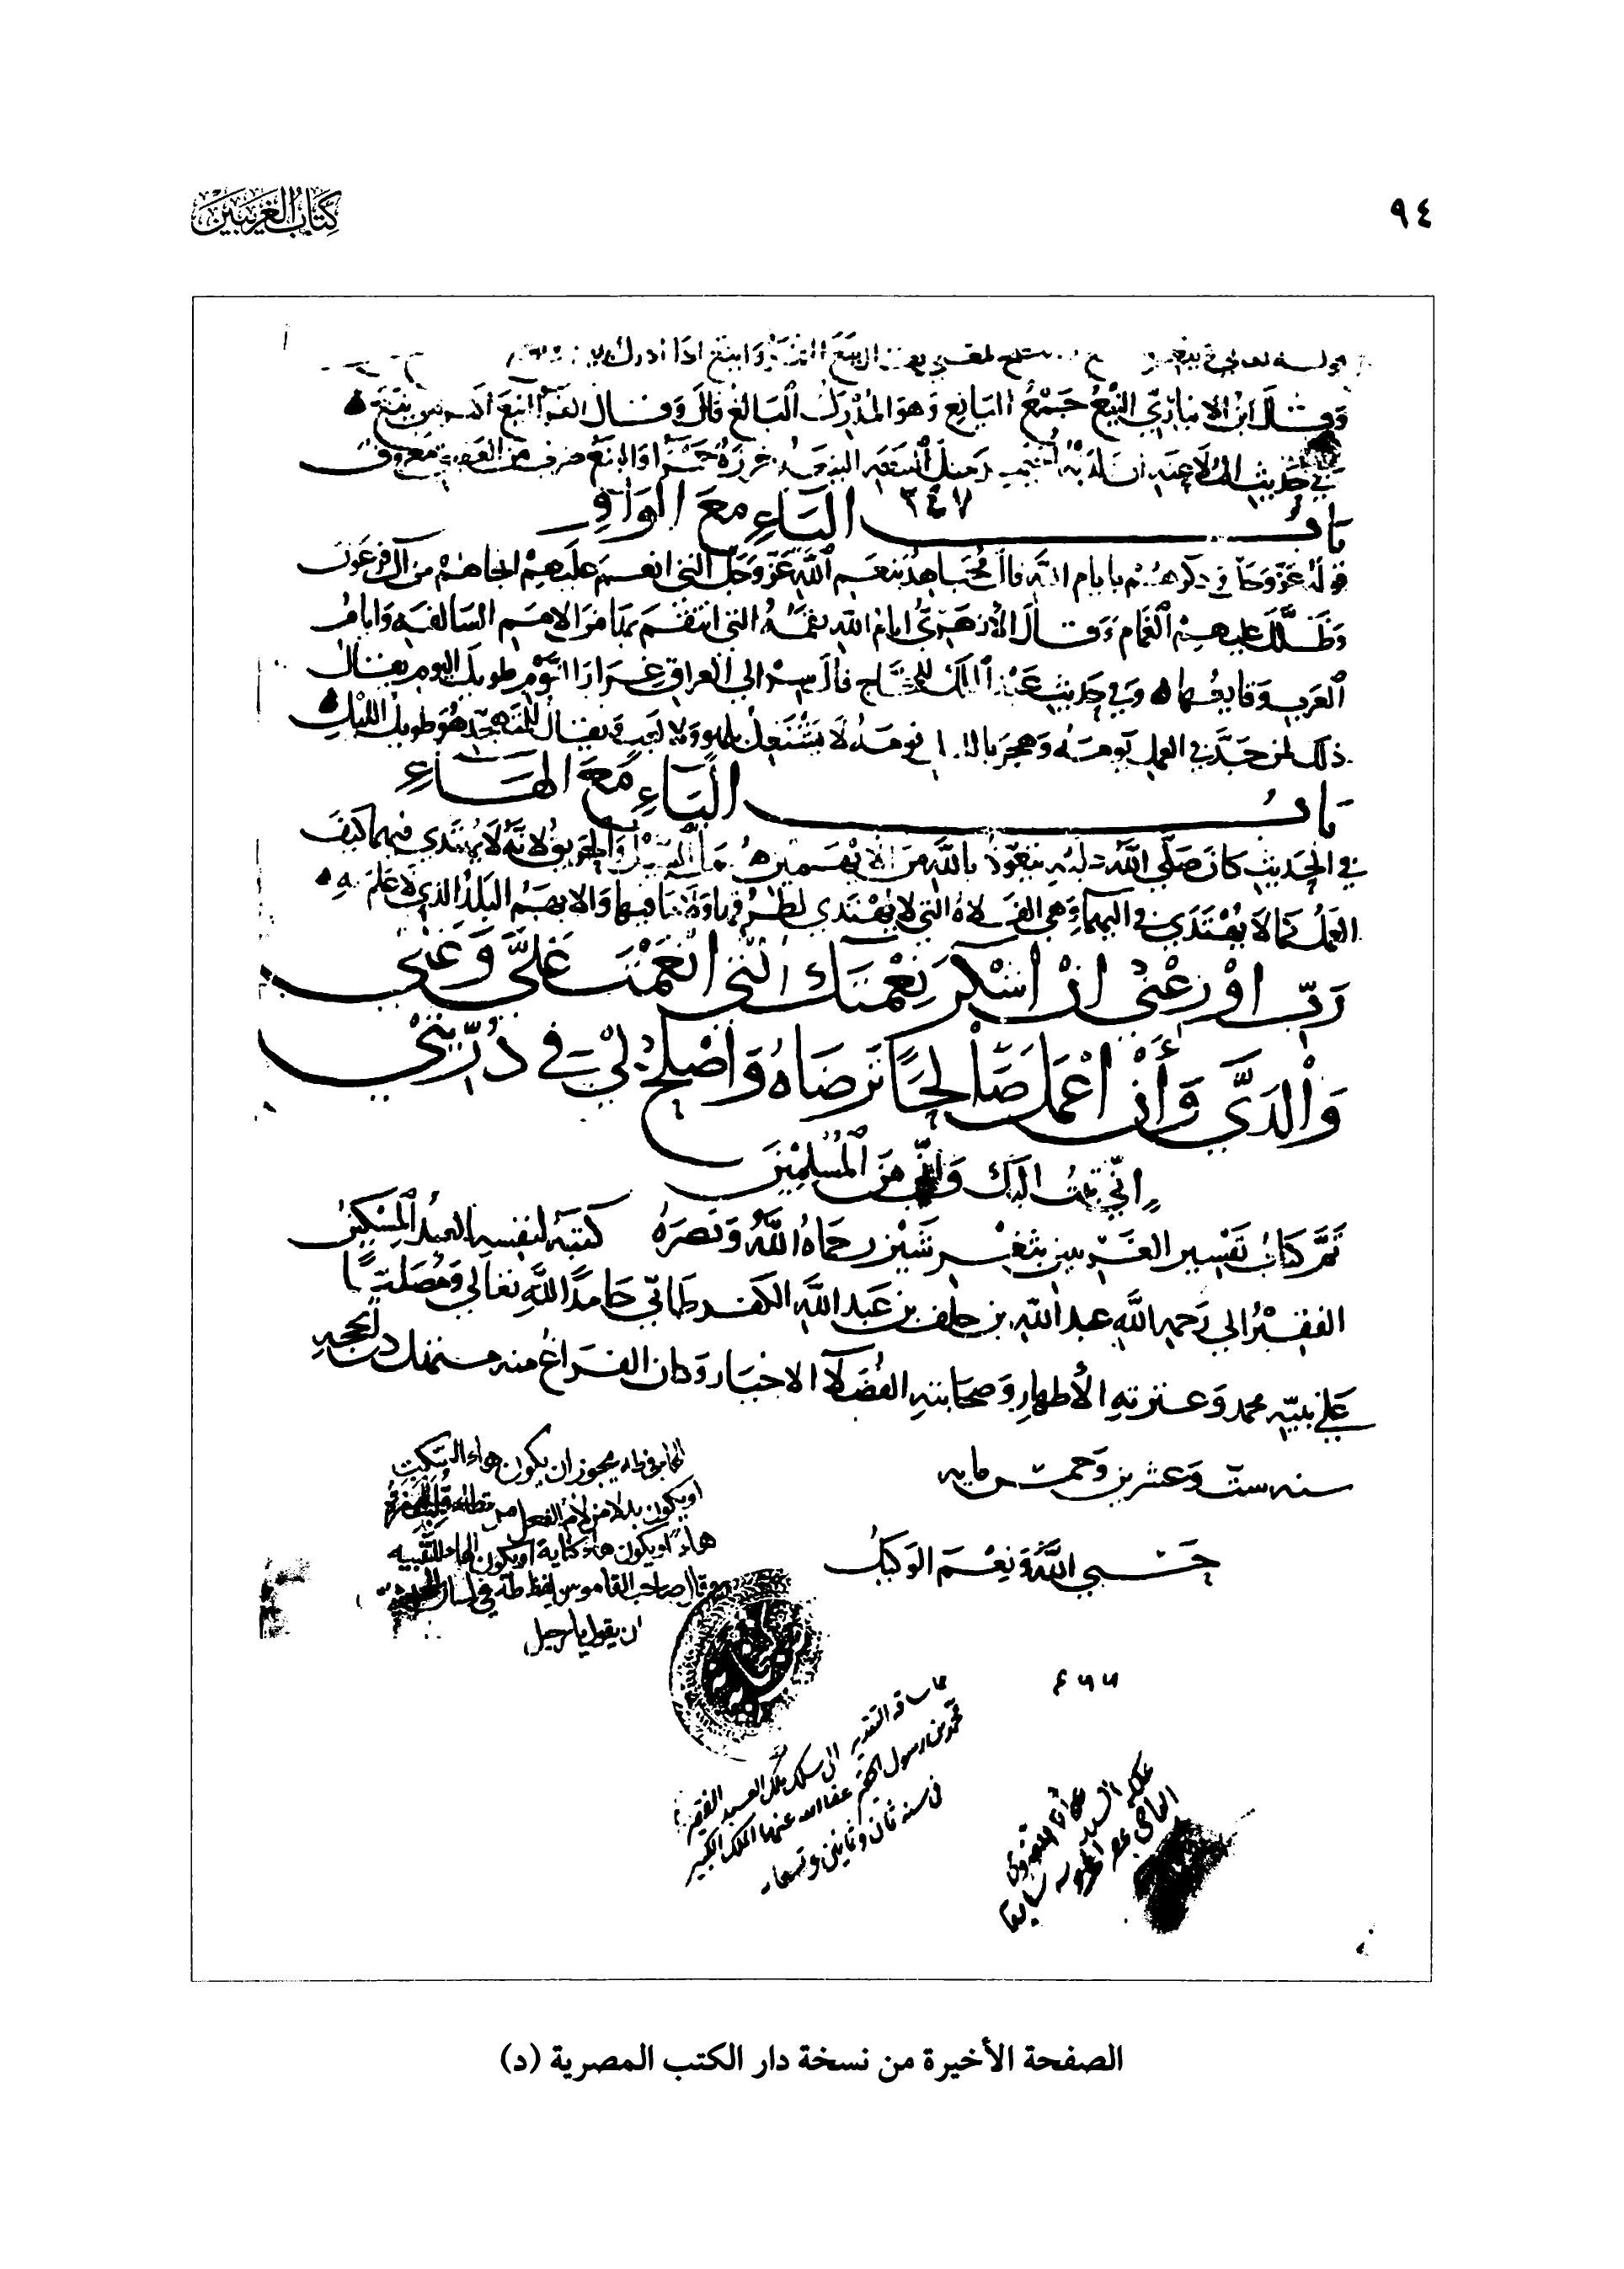 ٩٤
كتاب الغريبين
وقال ابن الانباري الينع جمع اليانع وهو المدرك البالغ قال وقال الفرا اينع اكثر من ينع
في حديث الملاعنة ان ولدته احيمر مثل الينعة الينعة خرزة حمرا والينع ضرب من العقيق معروف
٢٤٧
باب الياء مع الواو
قوله عز وجل وذكرهم بايام الله قال مجاهد بنعم الله عز وجل التي انعم عليهم انجاهم من آل فرعون
وظلل عليهم الغمام وقال الازهري ايام الله نقمه التي انتقم بها من الامم السالفة وايام
العرب وقايعها وفي حديث عبد الملك للحجاج قال سر الى العراق غرارا النوم طويل اليوم يقال
ذلك لمن جد في العمل يومه وهجر بالا يومه لا يشتغل بلهو ولا لعب ويقال للمتهجد هو طويل الليل
باب الياء مع الهاء
في الحديث كان صلى الله عليه يتعوذ بالله من الايهمين هما السيل والحريق لانه لا يهتدى فيهما كيف
العمل كما لا يهتدى في اليهماء وهي الفلاة التي لا يهتدى لطرقها ولا ما فيها والايهم البلد الذي لا علم به
رب اوزعني ان اشكر نعمتك التي انعمت علي وعلى
والدي وأن اعمل صالحا ترضاه واصلح لي في ذريتي
اني تبت اليك واني من المسلمين
تم كتاب تفسير الغريبين بثغر شيزر حماه الله ونصره كتبه لنفسه العبد المسكين
الفقير الى رحمه الله عبد الله بن خلف بن عبد الله الكفرطابي حامدا لله تعالى ومصليا
على نبيه محمد وعترته الأطهار وصحابته الفضلا الاخيار وكان الفراغ منه مستهل ذي الحجه
سنه ست وعشرين وخمس مايه
حسبي الله ونعم الوكيل
الهاء في طه يجوز ان يكون هاء السكت
او يكون بدلا من لام الفعل من قلب الهمزة
هاء او يكون هاء كناية او يكون الهاء للتنبيه
وقال صاحب القاموس لفظ طه في لسان الحبشة
ان يقول يا رجل
٥٢٦
مما ساقه التقدير الى سلك ملك العبد الفقير
محمد بن رسول عفا الله عنهما الملك الكبير
في سنه ثمان وثمانين وتسعمايه
الصفحة الأخيرة من نسخة دار الكتب المصرية (د)